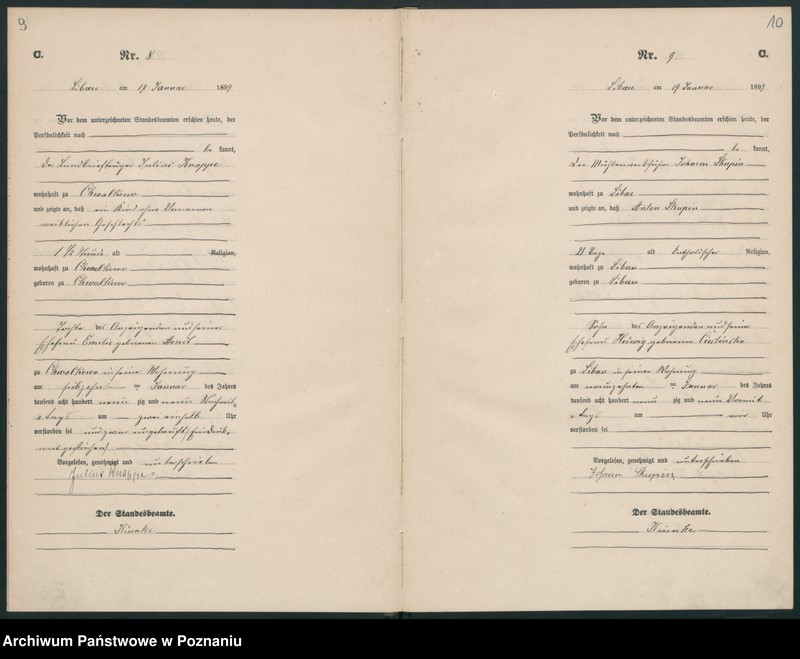 9
C.
Nr. 8
Libau am 17 Januar 1899
Vor dem unterzeichneten Standesbeamten erschien heute, der
Persönlichkeit nach
be kannt,
Der Landbriefträger Julius Knappe
wohnhaft zu Chwalkowo
und zeigte an, daß ein Kind ohne Vornamen
weiblichen Geschlechts
1 1/2 Stunde alt Religion,
wohnhaft zu Chwalkowo
geboren zu Chwalkowo
Tochter des Anzeigenden und seiner
Ehefrau Emilie geborenen Arndt
zu Chwalkowo in seiner Wohnung
am siebzehnten Januar des Jahres
tausend acht hundert neun zig und neun Vormit
tags um zwei einhalb Uhr
verstorben sei und zwar ungetauft
Vorgelesen, genehmigt und unterschrieben
Julius Knappe
Der Standesbeamte.
10
C.
Nr. 9
Libau am 19 Januar 1899
Vor dem unterzeichneten Standesbeamten erschien heute, der
Persönlichkeit nach
be kannt,
Der Mühlenwerkführer Johann Skupin
wohnhaft zu Libau
und zeigte an, daß Anton Skupin
21 Tage alt katholischer Religion,
wohnhaft zu Libau
geboren zu Libau
Sohn des Anzeigenden und seiner
Ehefrau Hedwig geborenen
zu Libau in seiner Wohnung
am neunzehnten Januar des Jahres
tausend acht hundert neun zig und neun Vormit
tags um vier Uhr
verstorben sei
Vorgelesen, genehmigt und unterschrieben
Johann Skupin
Der Standesbeamte.
Archiwum Państwowe w Poznaniu